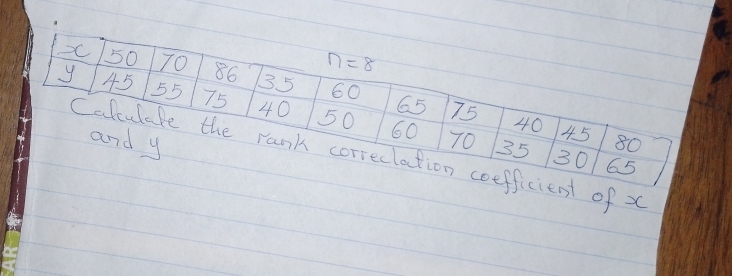 n=8
x 50 70 86 35 60 65 75 40 45 80
y 45 55 75 40 50 60 70 35 30 65
Calculate the rank correclation coefficient of x
and y
AR